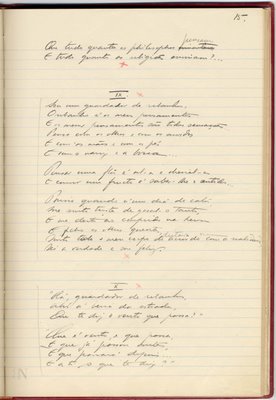 15.
pensam
Que tudo quanto os philosophos
E tudo quanto as religiões ensinam?...
IX
Sou um guardador de rebanhos,
O rebanho é os meus pensamentos
E os meus pensamentos são todos sensações
Penso com os olhos e com os ouvidos
E com as mãos e os pés
E com o nariz e a bocca...
Pensar uma flôr é vel-a e cheiral-a
E comer um fructo é saber-lhe o sentido...
Por isso quando n'um dia de calor
Me sinto triste de gosal-o tanto,
E me deito ao comprido na herva
E fecho os olhos quentes,
Sinto todo o meu corpo deitado na realidade,
Sei a verdade e sou feliz.
X
"Olá, guardador de rebanhos,
Ahi á beira da estrada,
Que te diz o vento que passa?"
"Que é vento, e que passa,
E que já passou antes,
E que passará depois.
E a ti o que te diz?"